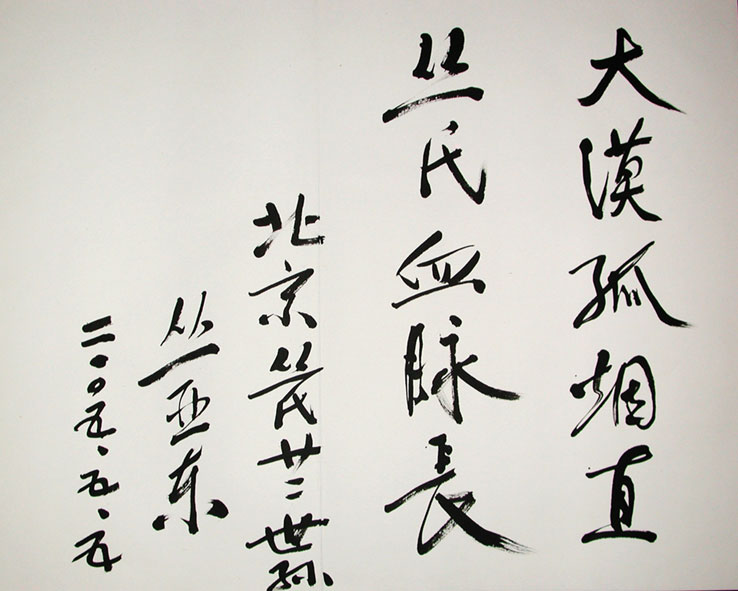 大漠孤烟直
丛氏血脉长
北京丛氏廿二世孙
丛亚东
二〇〇五、五、五